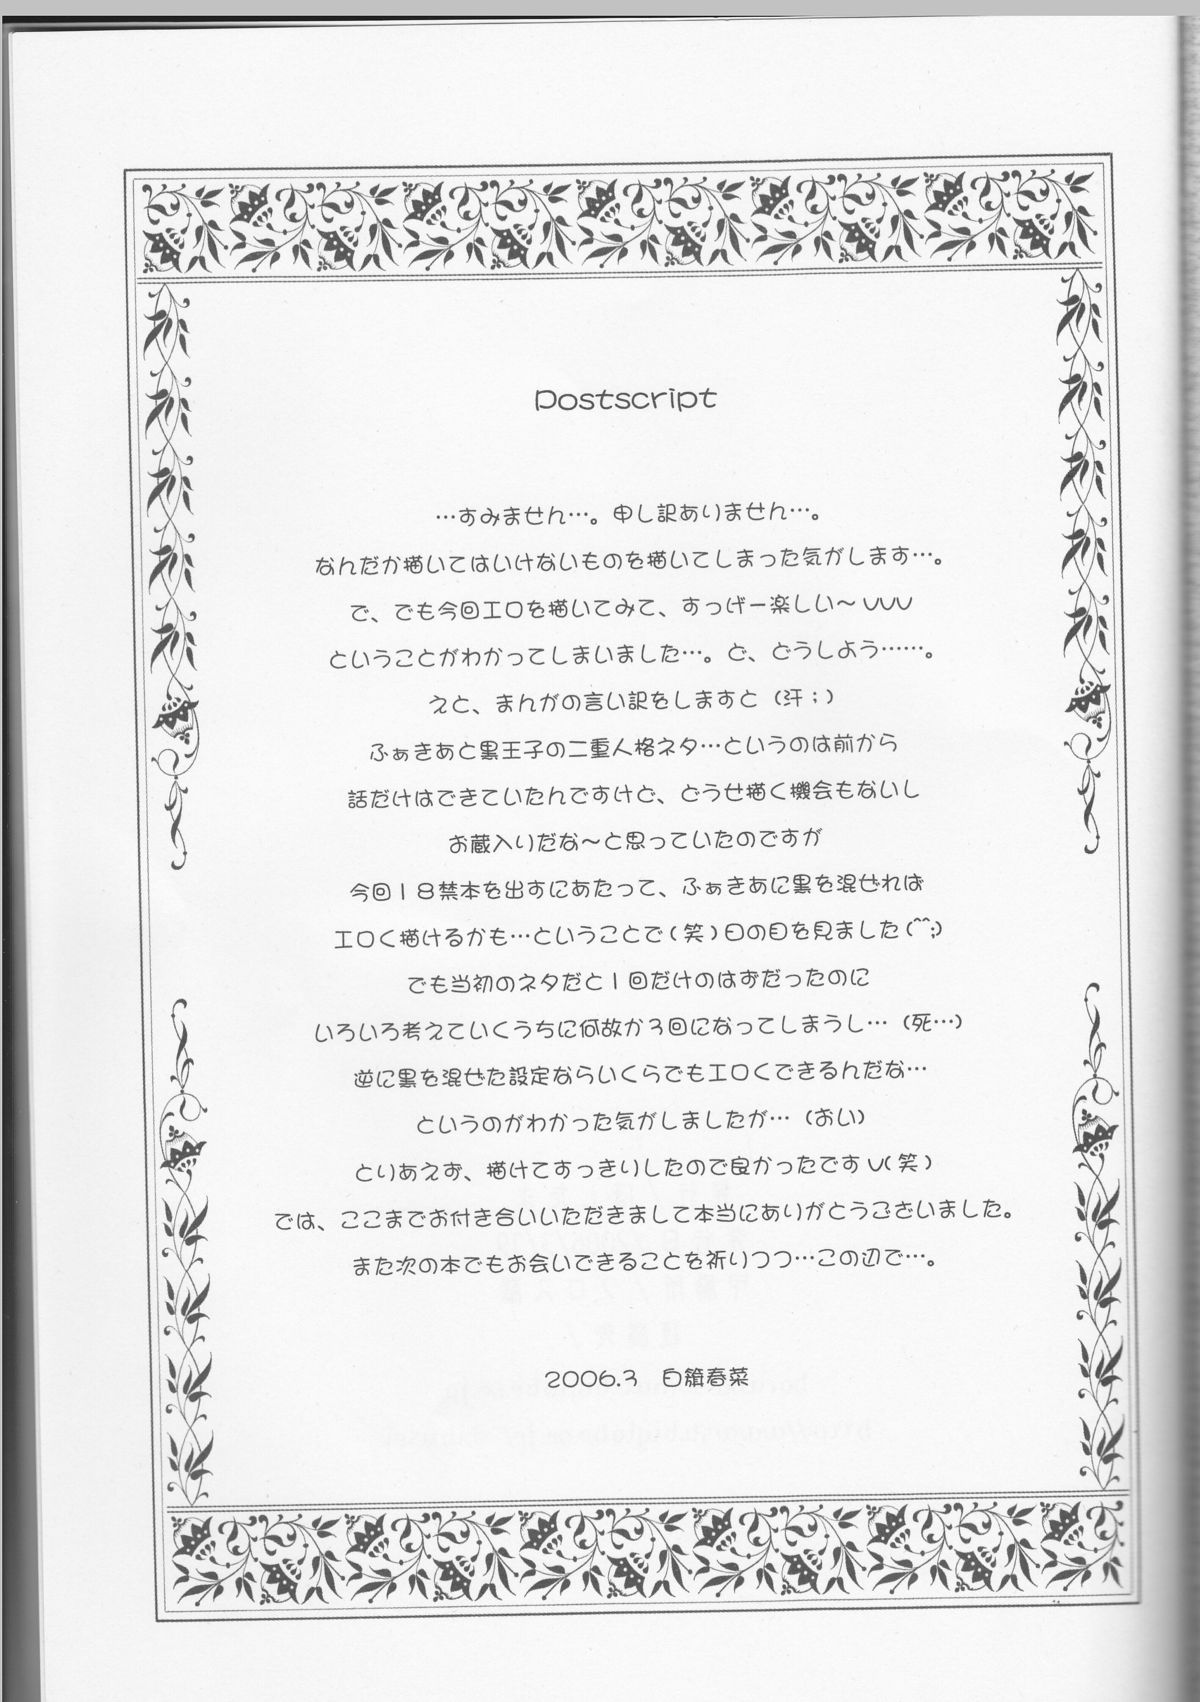 Postscript
…すみません…。申し訳ありません…。
なんだか描いてはいけないものを描いてしまった気がします…。
で、でも今回エロを描いてみて、すっげー楽しい～VVV
ということがわかってしまいました…。ど、どうしよう……。
えと、まんがの言い訳をしますと（汗；）
ふぁきあと黒王子の二重人格ネタ…というのは前から
話だけはできていたんですけど、どうせ描く機会もないし
お蔵入りだな～と思っていたのですが
今回１８禁本を出すにあたって、ふぁきあに黒を混ぜれば
エロく描けるかも…ということで(笑)日の目を見ました(^^;)
でも当初のネタだと１回だけのはずだったのに
いろいろ考えていくうちに何故か３回になってしまうし…（死…）
逆に黒を混ぜた設定ならいくらでもエロくできるんだな…
というのがわかった気がしましたが…（おい）
とりあえず、描けてすっきりしたので良かったですV(笑)
では、ここまでお付き合いいただきまして本当にありがとうございました。
また次の本でもお会いできることを祈りつつ…この辺で…。
2006.3　白籏春菜